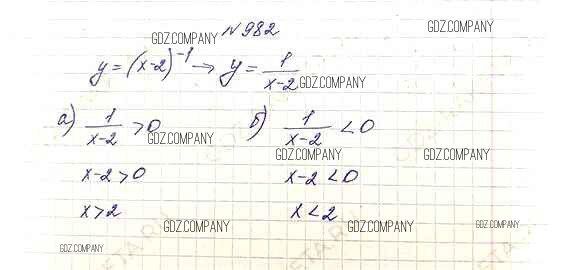 GDZ.COMPANY
№982
GDZ.COMPANY
y=(x-2)^-1 → y=1/(x-2)
GDZ.COMPANY
а) 1/(x-2) >0 б) 1/(x-2) <0
GDZ.COMPANY
GDZ.COMPANY GDZ.COMPANY
x-2>0 x-2<0
x>2 x<2
GDZ.COMPANY GDZ.COMPANY GDZ.COMPANY
GDZ.COMPANY